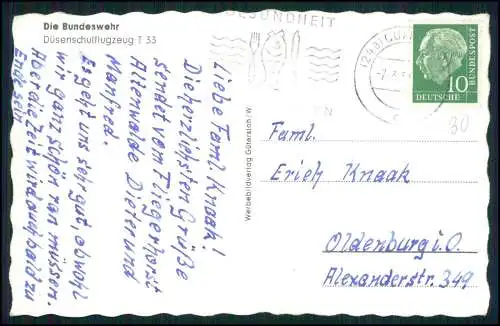 Die Bundeswehr
Düsenschulflugzeug T 33
Liebe Faml. Knaak!
Die herzlichsten Grüße
sendet vom Fliegerhorst
Ahlenwalde Dieter und
Manfred.
Es geht uns sehr gut, obwohl
wir ganz schön ran müssen.
Aber die Zeit wird auch bald zu
Ende sein.
Werbebildverlag Gütersloh/W.
GESUNDHEIT
DEUTSCHE
BUNDESPOST
10
30
Faml.
Erich Knaak
Oldenburg i. O.
Alexanderstr. 349